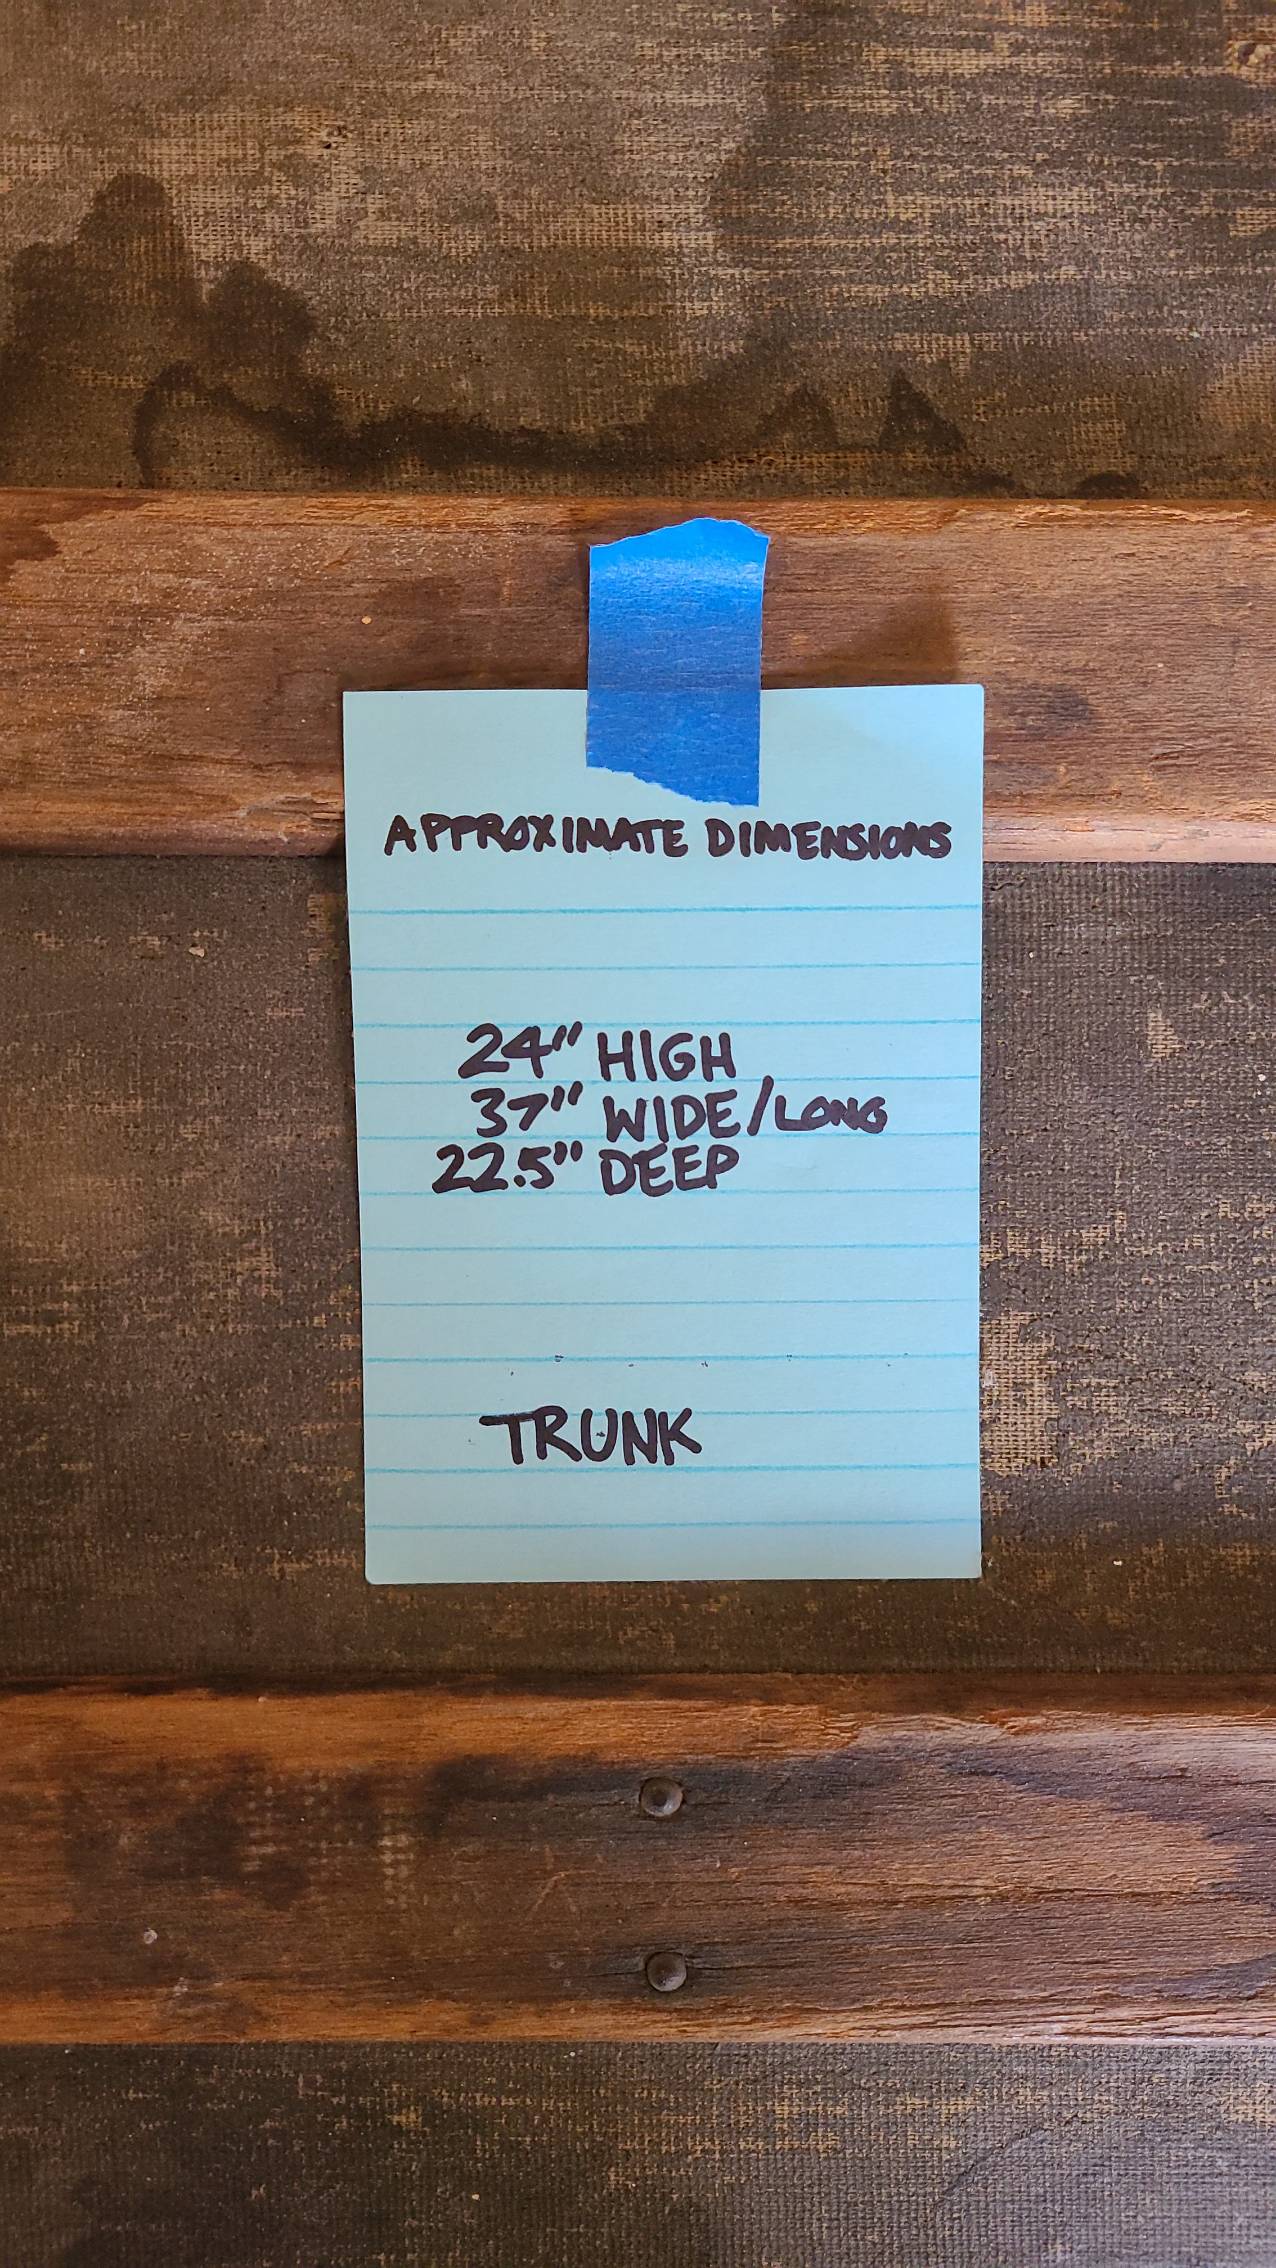 APPROXIMATE DIMENSIONS
24" HIGH
37" WIDE/LONG
22.5" DEEP
TRUNK